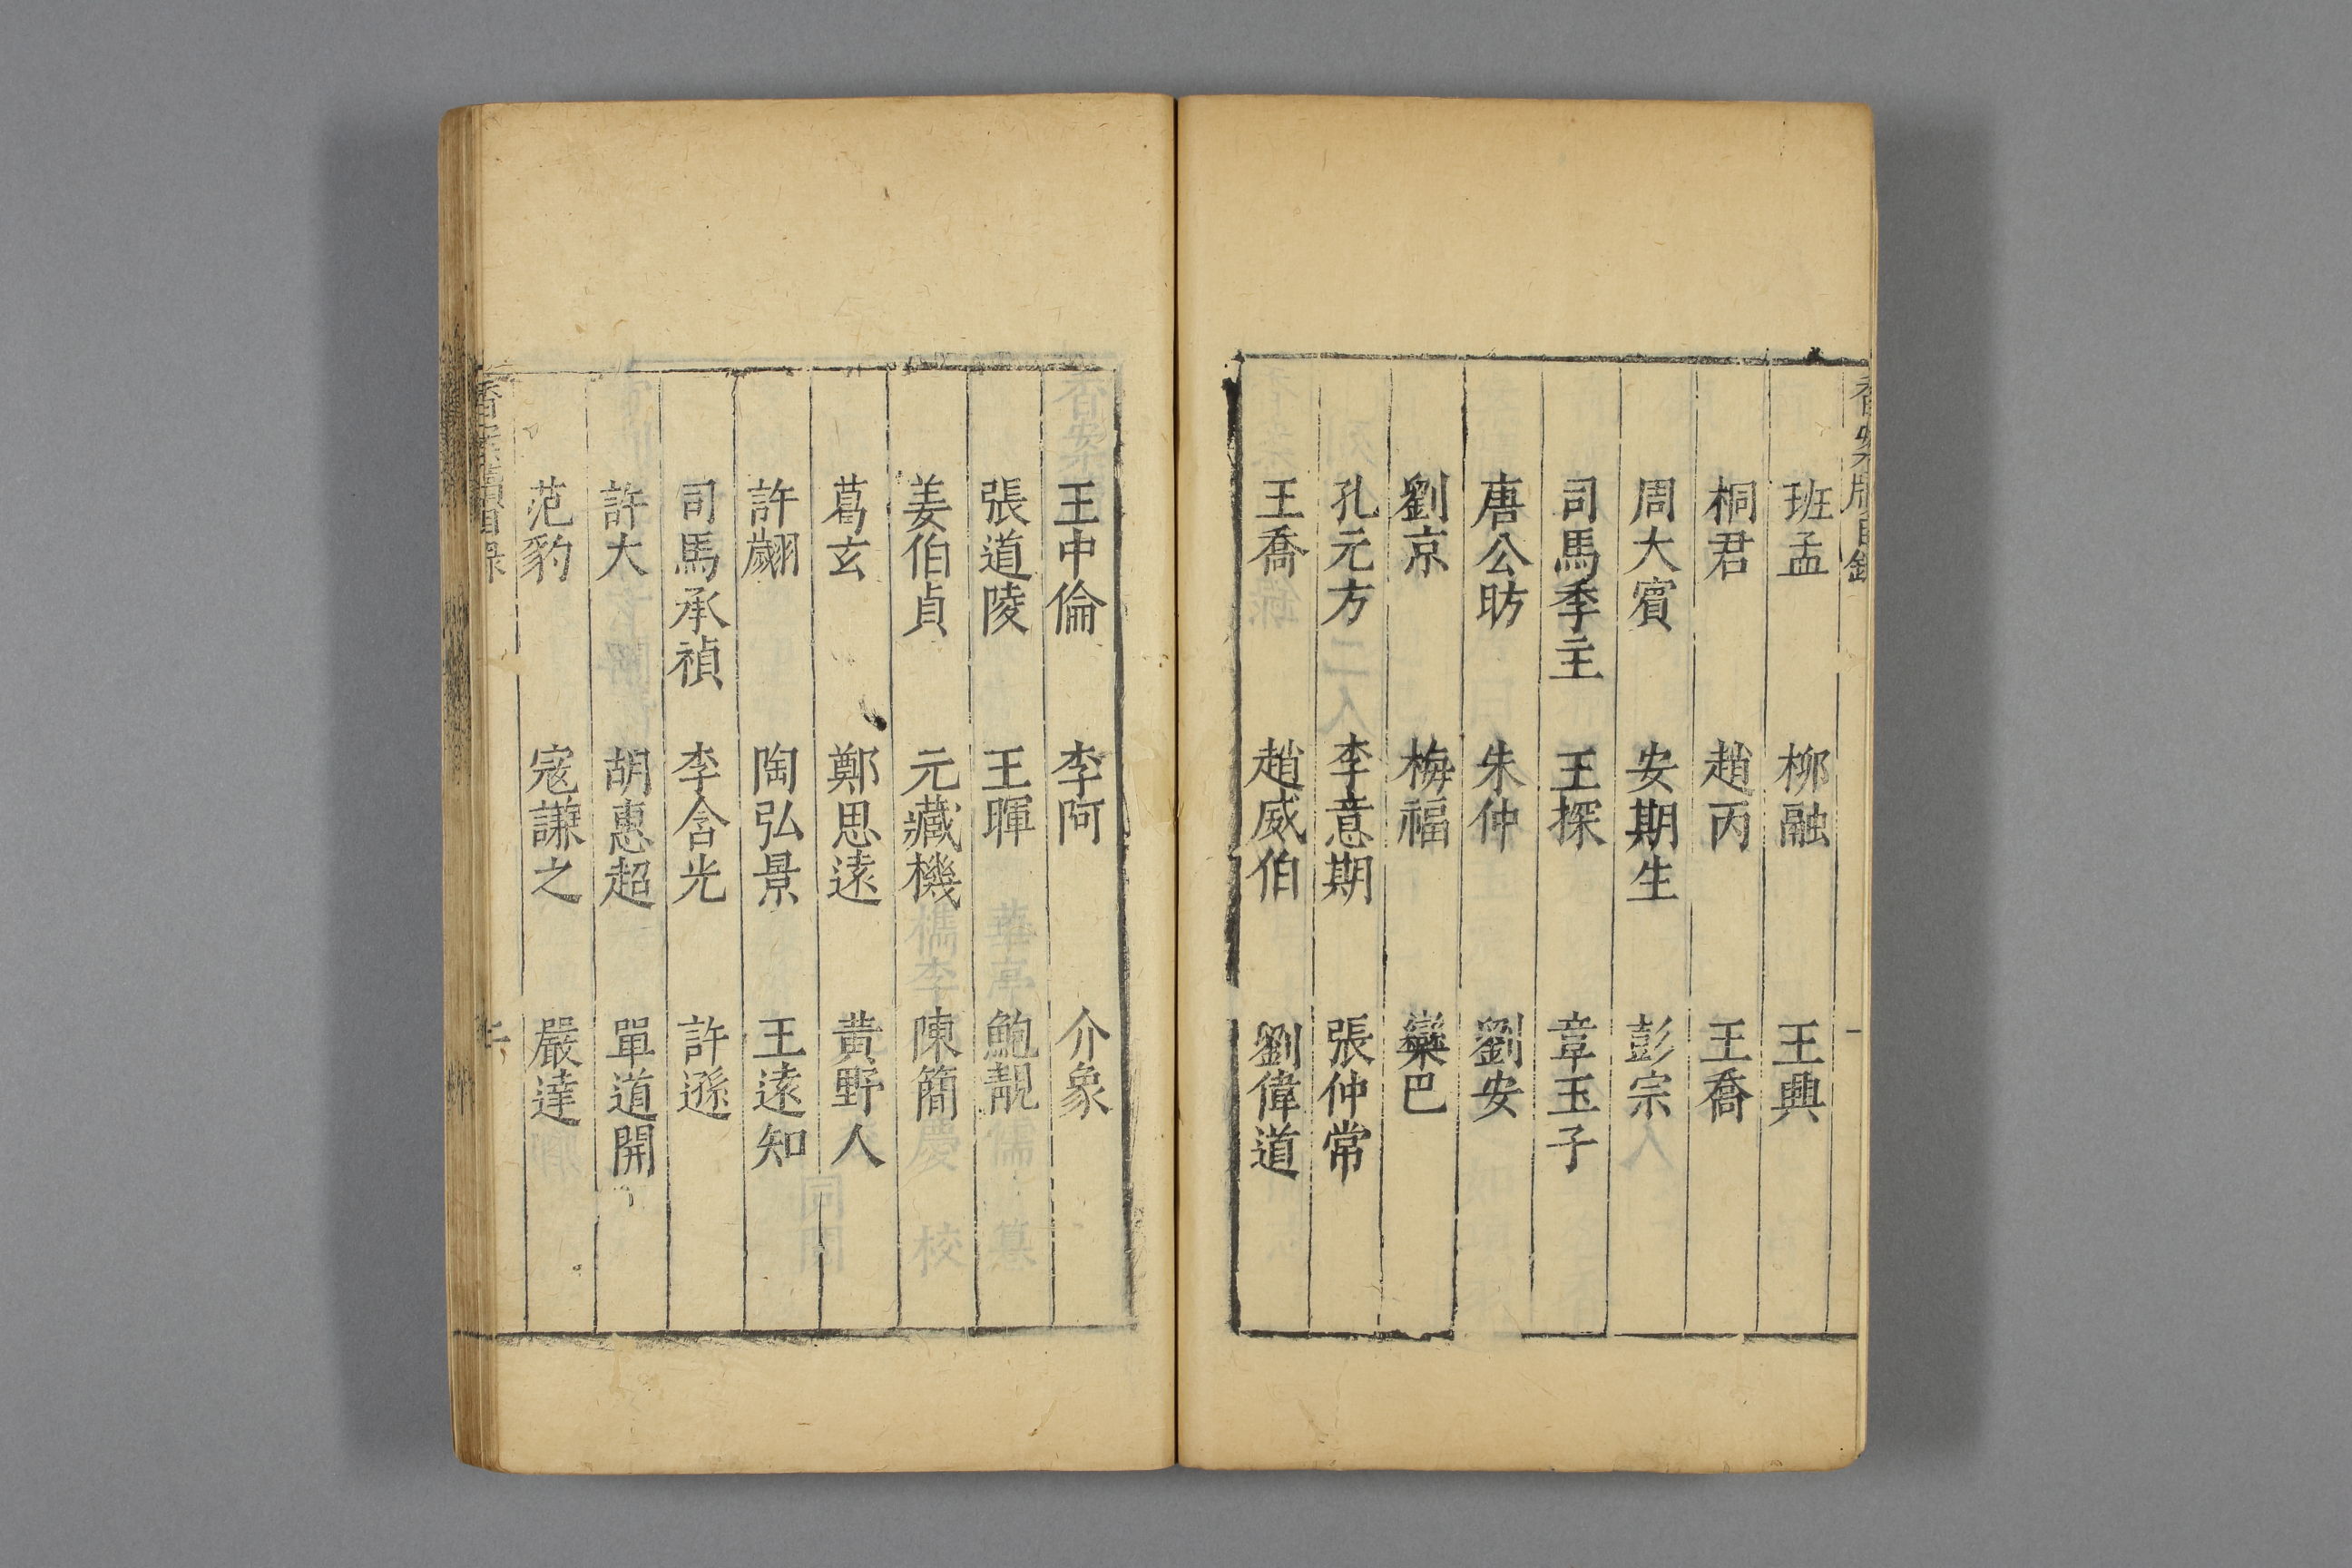 香案牘目錄
班孟 柳融 王興
桐君 趙丙 王喬
周大賓 安期生 彭宗
司馬季主 王探 章玉子
唐公昉 朱仲 劉安
劉京 梅福 欒巴
孔元方 李意期 張仲常
王喬 趙威伯 劉偉道
王中倫 李阿 介象
張道陵 王暉 鮑靚
姜伯貞 元藏機 陳簡
葛玄 鄭思遠 黃野人
許翽 陶弘景 王遠知
司馬承禎 李含光 許遜
許大 胡惠超 單道開
范豹 寇謙之 嚴達
香案牘目錄